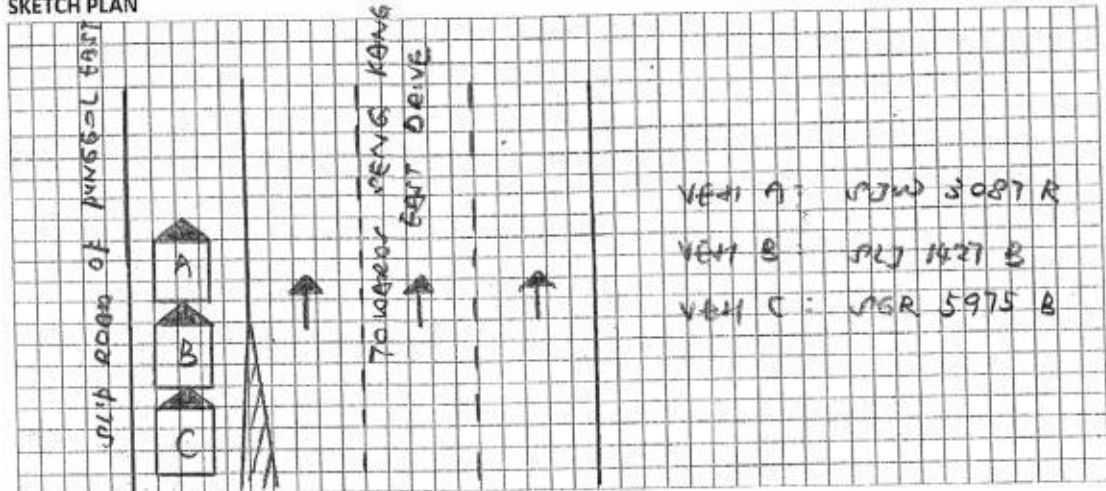 SKETCH PLAN
SLIP ROAD OF PUNGGOL EAST
TOWARDS SENG KANG
EAST DRIVE
A
B
C
VEH A: SJW 3087 R
VEH B: SLJ 1427 B
VEH C: SGR 5975 B